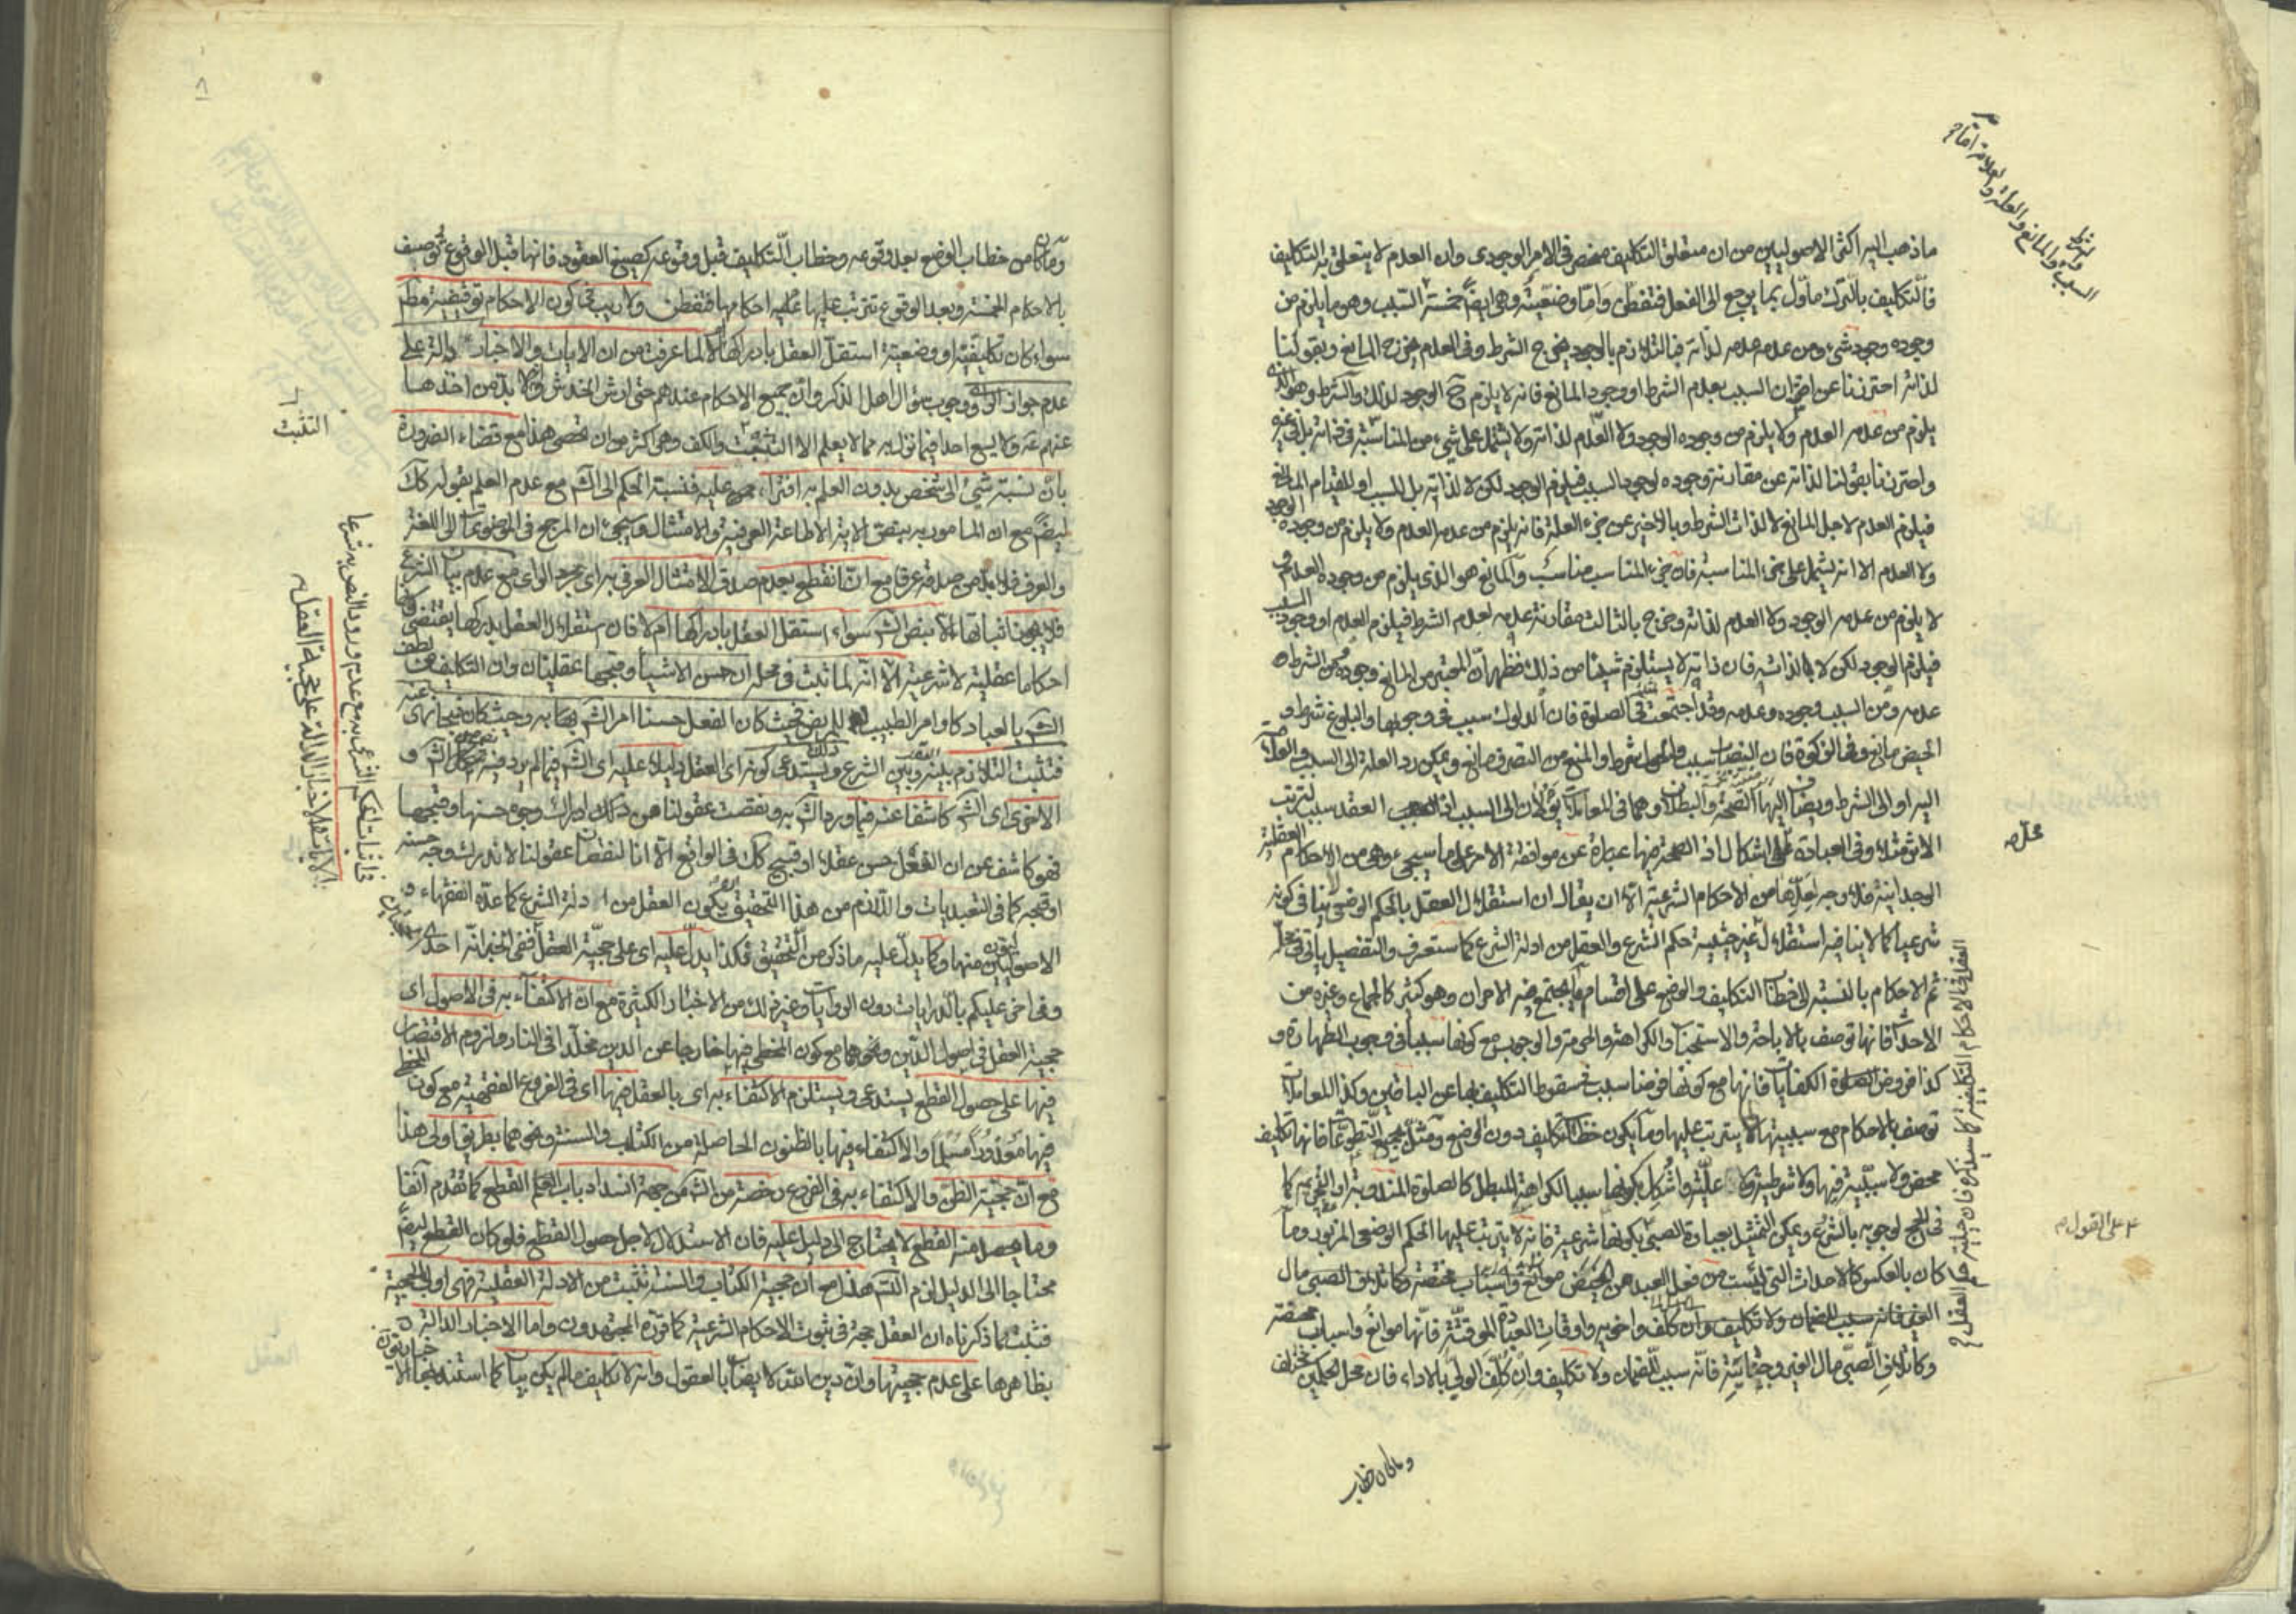 ما ذهب اليه اكثر الاصوليين من ان متعلق التكليف منحصر فى الامر الوجودى وان العدم لا يتعلق به التكليف
فالتكليف بالترك مأول بما يرجع الى الفعل فتفطن واما وضعية وهى ايضا خمسة السبب وهو ما يلزم من
وجوده وجود شىء ومن عدمه عدمه لذاته فبالتلازم بالوجود يخرج الشرط وفى العدم يخرج المانع وبقولنا
لذاته احترزنا عن اقتران السبب بعدم الشرط او وجود المانع فانه لا يلزم ح الوجود لذلك والشرط وهو الذى
يلزم من عدمه العدم ولا يلزم من وجوده الوجود ولا العدم لذاته ولا يشتمل على شىء من المناسبة فى ذاته بل فى غيره
واحترزنا بقولنا لذاته عن مقارنة وجوده لوجود السبب فيلزم الوجود لكن لا لذاته بل للسبب او لقيام المانع
فيلزم العدم لاجل المانع لا لذات الشرط وبالاخير عن جزء العلة فانه يلزم من عدمه العدم ولا يلزم من وجوده الوجود
ولا العدم الا انه يشتمل على جزء المناسبة فان جزء المناسب مناسب والمانع هو الذى يلزم من وجوده العدم و
لا يلزم من عدمه الوجود ولا العدم لذاته وخرج بالثالث مقارنة عدمه لعدم الشرط فيلزم العدم او وجود السبب
فيلزم الوجود لكن لا لذاته فان ذاته لا يستلزم شيئا من ذلك فظهر ان المعتبر من المانع وجوده ومن الشرط
عدمه ومن السبب وجوده وعدمه وقد اجتمعت فى الصلوة فان الدلوك سبب فى وجوبها والبلوغ شرط و
الحيض مانع وفى الزكوة فان النصاب سبب والحول شرط والمنع من التصرف مانع ويمكن رد العلة الى السبب والعلامة
اليه او الى الشرط ويضاف اليها الصحة والبطلان وهما فى المعاملات يؤلان الى السبب اذ العقد سبب لترتب
الاثر مثلا وفى العبادة على اشكال اذ الصحة فيها عبارة عن موافقة الامر على ما سيجىء وهى من الاحكام العقلية
الوجدانية فلا وجه لعدها من الاحكام الشرعية الا ان يقال ان استقلال العقل بالحكم الوضعى لا ينافى كونه
شرعيا كما لا ينافيه استقلال غير حيثية حكم الشرع والعقل من ادلة الشرع كما ستعرف والتفصيل يأتى فى محله
ثم الاحكام بالنسبة الى خطاب التكليف والوضع على اقسام ما يجتمع فيه الامران وهو كثير كالجماع وغيره من
الاحداث فانها توصف بالاباحة والاستحباب والكراهة والحرمة والوجوب مع كونها سببا فى وجوب الطهارة و
كذا فروض الكفايات فانها مع كونها فرضا سبب لسقوط التكليف بها عن الباقين وكذا المعاملات
توصف بالاحكام مع سببيتها لما يترتب عليها وما يكون خطاب التكليف دون الوضع ومثل بجميع التطوعات فانها تكليف
محض ولا سببية فيها ولا شرطية ولا علية واشكل بكونها سببا لكراهة المبطل كالصلوة المندوبة او لتحريمه كما
فى الحج لوجوبه بالشرع ويمكن التمثيل بعبادة الصبى بكونها شرعية فانه لا يترتب عليها الحكم الوضعى المزبور وما
كان بالعكس كالاحداث التى ليست من فعل العبد من الحيض موانع واسباب محضة وكاتلاف الصبى مال
الغير فانه سبب للضمان ولا تكليف وان كلف واخر به واوقات العبادة الموقتة فانها موانع واسباب محضة
وكاتلاف الصبى مال الغير وجنايته فانه سبب للضمان ولا تكليف وان كلف الولى بالاداء فان محل الحكمين مختلف
وما كان خطاب
السبب والمانع والعلة والعلامة اما
والشرط
محله
على القول
العقل فى الاحكام التكليفية كما سيذكره فان حيثية حكم العقل
وما كان من خطاب الوضع بعد وقوعه وخطاب التكليف قبل وقوعه كصيغ العقود فانها قبل الوقوع توصف
بالاحكام الخمسة وبعد الوقوع تترتب عليها عليه احكامها فتفطن ولا ريب فى كون الاحكام توقيفية مطم
سواء كان تكليفية او وضعية استقل العقل بادراكها ام لا لما عرفت من ان الايات والاخبار دالة على
عدم جواز ووجوب سؤال اهل الذكر وان جميع الاحكام عندهم حتى ارش الخدش ولا بد من اخذها
عنهم ع ولا يسع احدا فيما نزل به مما لا يعلم الا التثبت والكف وهى اكثر من ان تحصى هذا مع قضاء الضرورة
بان نسبة شىء الى شخص بدون العلم به افتراء عليه فنسبة الحكم الى الش مع عدم العلم بقوله كك
ايضا مع ان المامور به بنص الاية الاطاعة العرفية والامتثال وسيجىء ان المرجع فى الموضوعات الى اللغة
والعرف فلا بد من صدقه عرفا مع انا نقطع بعدم صدق الامتثال العرفى به اى بمجرد الراى مع عدم بيان الشرع
فلا يجوز اثباتها الا بنص الش سواء استقل العقل بادراكها ام لا فان استقلال العقل بدركها يقتضى كونها
احكاما عقلية لا شرعية الا انه لما ثبت فى محله ان حسن الاشياء وقبحها عقليتان وان التكاليف لطف من
الش بالعباد كاوامر الطبيب للمريض فحيث كان الفعل حسنا امر الش بها به وحيث كان قبيحا نهى عنه
فثبت التلازم بينه وبين الشرع ويستدعى ذلك كونه اى العقل دليلا عليه اى الش فيما لم يرد فيه نص من الش و
الاخرى اى الش كاشفا عنه فيما ورد الش به ونقصت عقولنا من درك ادراك وجوه حسنها وقبحها
فهو كاشف عن ان الفعل حسن عقلا او قبيح كك فى الواقع الا انا لنقصان عقولنا لا ندرك وجه حسنه
او قبحه كما فى التعبديات واللازم من هذا التحقيق يكون العقل من ادلة الشرع كما عده الفقهاء و
الاصوليون منها وكما يدل عليه ما ذكر من التحقيق فكذا يدل عليه اى على حجية العقل ففى الخبر انه احدى الحجتين
وفى اخر عليكم بالدرايات دون الروايات وغير ذلك من الاخبار الكثيرة مع ان الاكتفاء به فى الاصول اى
حجية العقل فى اصول الدين ونحوها مع كون المخطى فيها خارجا عن الدين مخلدا فى النار ولزوم الاقتصار
فيها على حصول القطع يستدعى ويستلزم الاكتفاء به اى بالعقل فيها اى فى الفروع الفقهية مع كون المخطى
فيها معذورا مسلما والاكتفاء فيها بالظنون الحاصلة من الكتاب والسنة ونحوهما بطريق اولى هذا
مع ان حجية الظن والاكتفاء به فى الفروع رخصة من الش من جهة انسداد باب العلم القطع كما تقدم آنفا
وما يحصل منه القطع لا يحتاج الى دليل عليه فان الاستدلال لاجل حصول القطع فلو كان القطع ايضا
محتاجا الى الدليل لزم التس هذا مع ان حجية الكتاب والسنة تثبت من الادلة العقلية فهى اولى بالحجية
فثبت بما ذكرناه ان العقل حجة فى ثبوت الاحكام الشرعية كما قرره المجتهدون واما الاخبار الدالة
بظاهرها على عدم حجيتها وان دين الله لا يصاب بالعقول وانه لا تكليف ما لم يكن بيان كما استند بها الاخباريون
التثبت
فى اثبات الحكم الشرعى به مع عدم ورود النص به شرعا
الايات والاخبار الدالة على حجية العقل